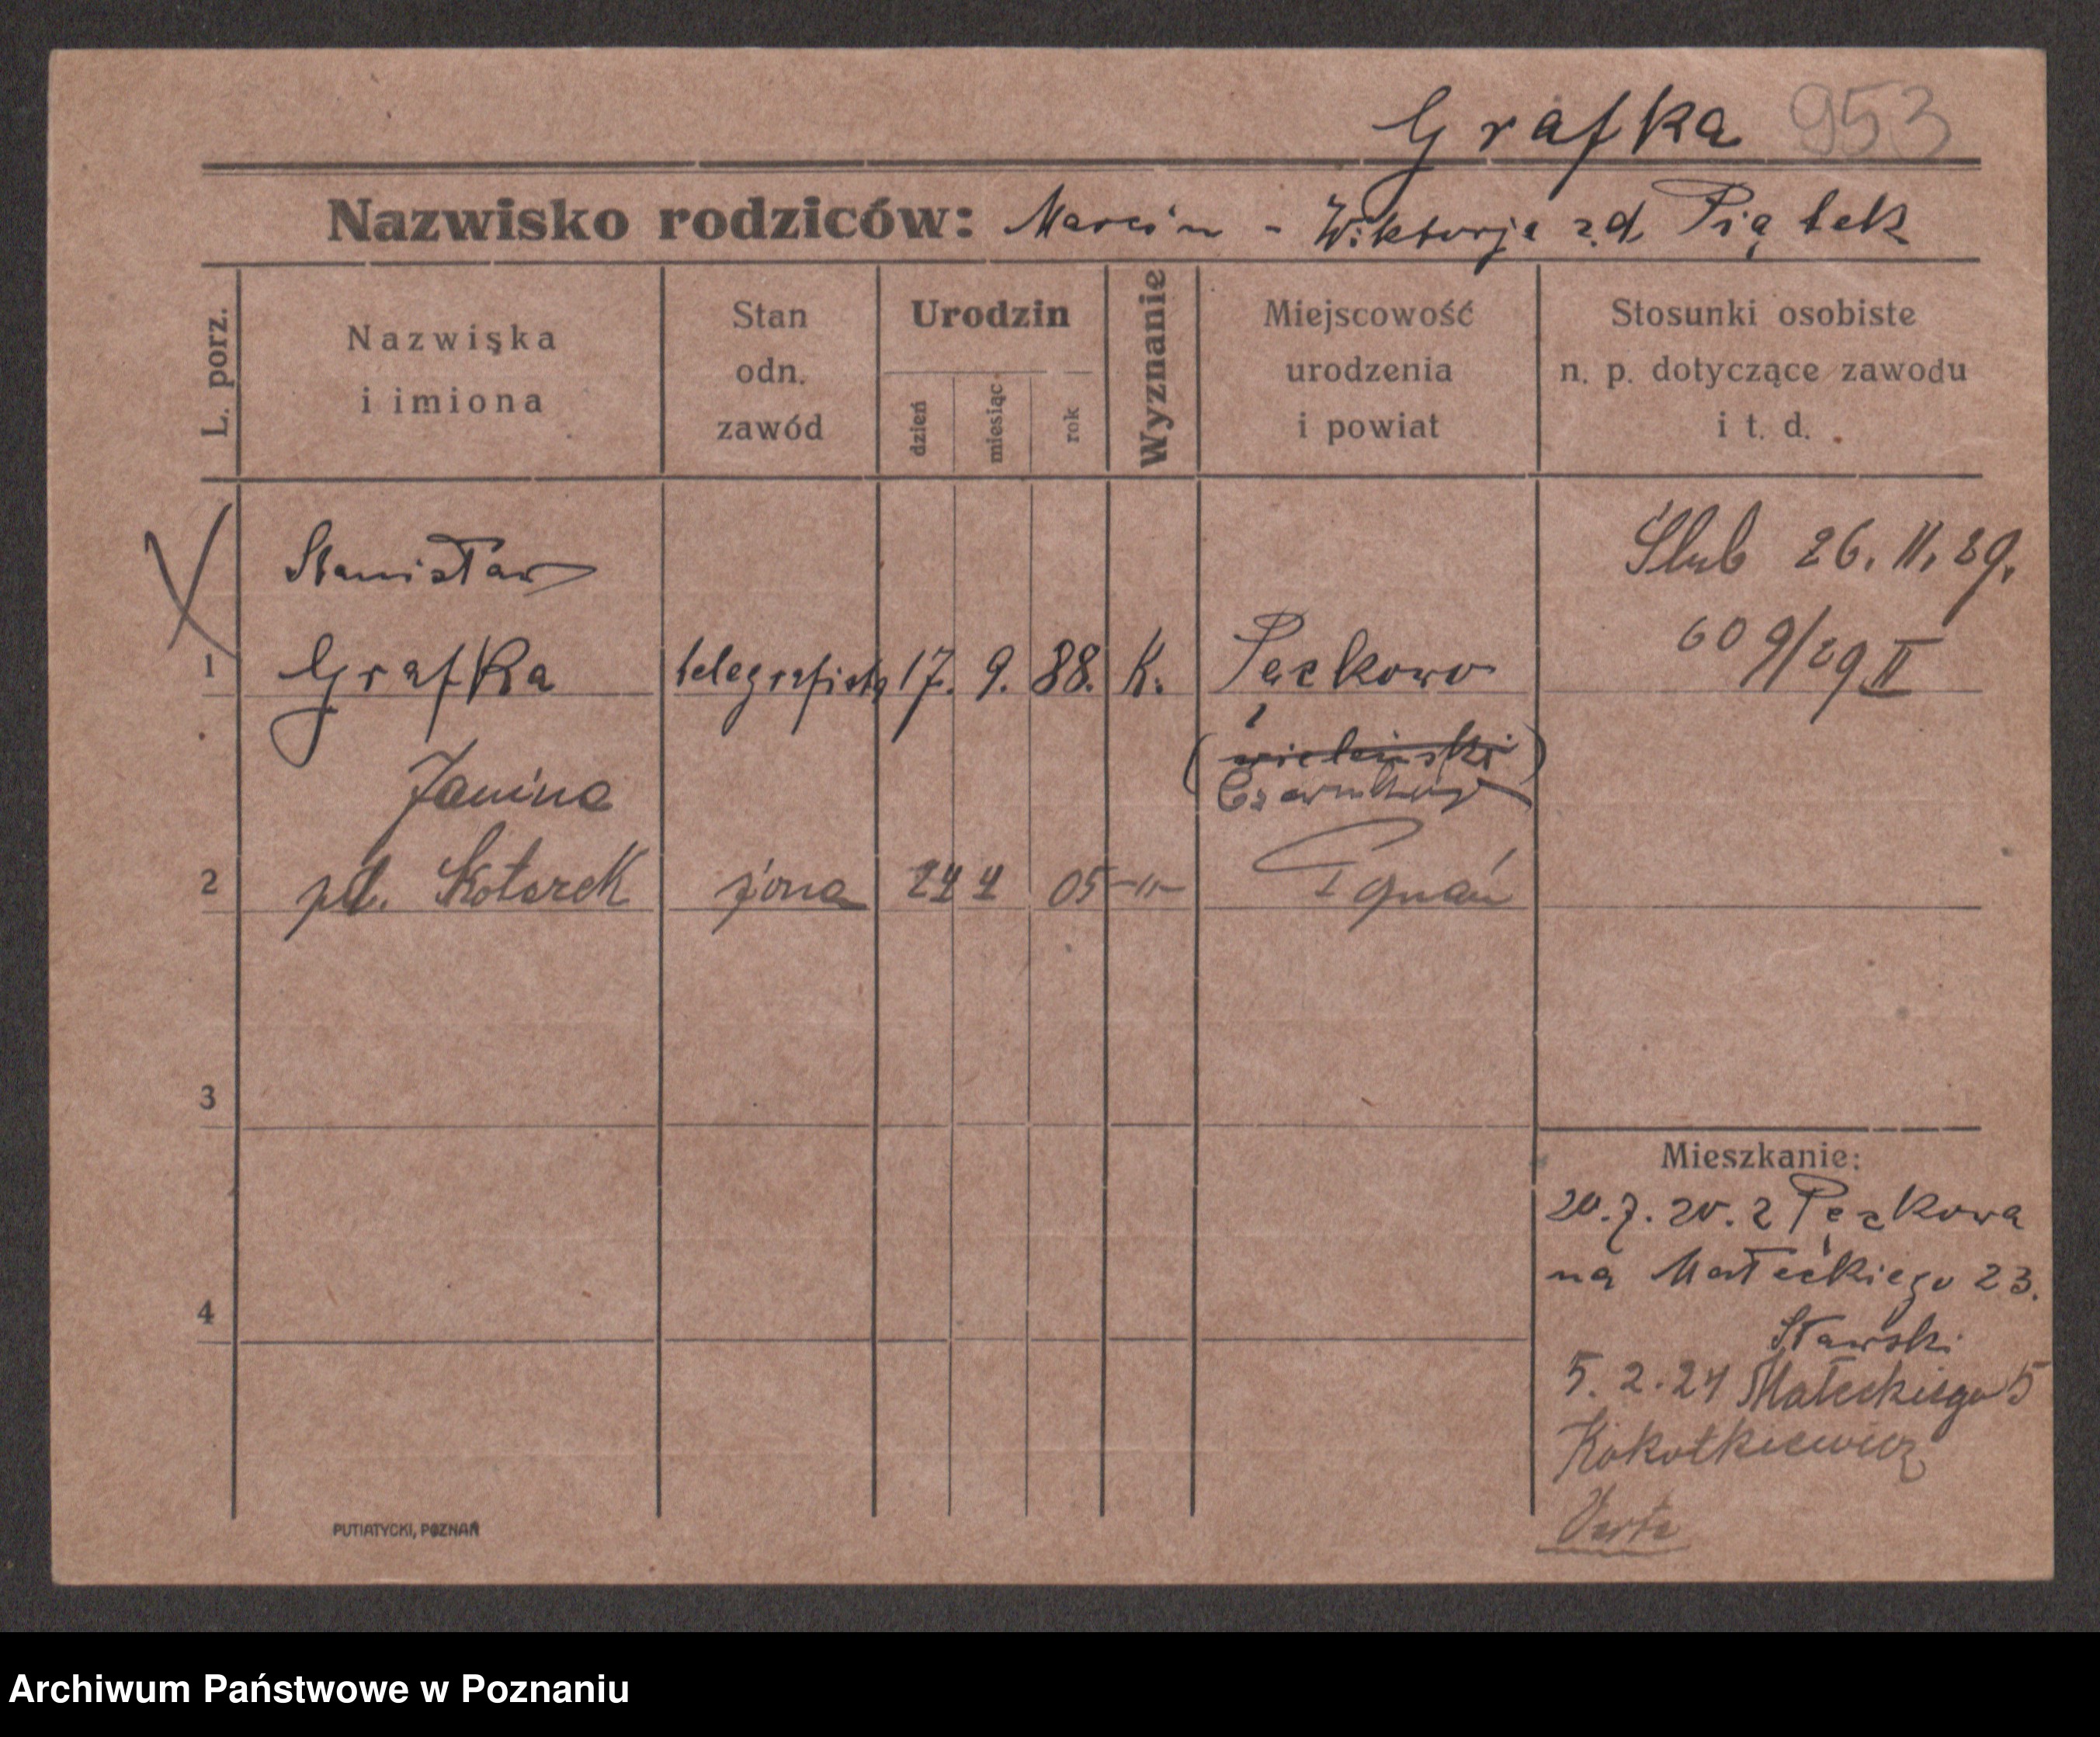 Grafka 953
Nazwisko rodziców: Marcin - Wiktorja z.d. Piątek
L. porz.
Nazwiska
i imiona
Stan
odn.
zawód
Urodzin
dzień
miesiąc
rok
Wyznanie
Miejscowość
urodzenia
i powiat
Stosunki osobiste
n. p. dotyczące zawodu
i t. d.
Stanisław
1 Grafka telegrafista 17. 9. 88. K. Pęckowo
Ślub 26. II. 29.
609/29 II
(wieleński)
Janina
2 żona 05 -"-
3
4
Mieszkanie:
20.7.20. z Pęckowa
na Małeckiego 23.
Sławski
5. 2. 24 Małeckiego 5
Kokotkiewicz
Verte
PUTIATYCKI, POZNAŃ
Archiwum Państwowe w Poznaniu